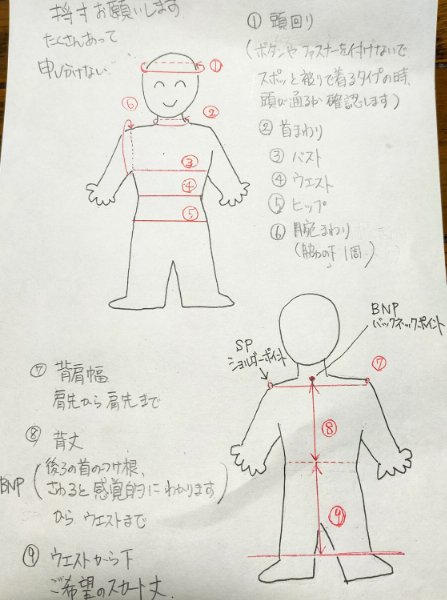 採寸お願いします
たくさんあって
申し分けない
① 頭回り
(ボタンやファスナーを付けないで
スポッと被りで着るタイプの時、
頭が通るか確認します)
② 首まわり
③ バスト
④ ウエスト
⑤ ヒップ
⑥ 腕まわり
(脇の下1周)
①
②
⑥
③
④
⑤
BNP
バックネックポイント
SP
ショルダーポイント
⑦
⑧
⑨
⑦ 背肩幅
肩先から肩先まで
⑧ 背丈
BNP (後ろの首のつけ根、
さわると感覚的にわかります)
から ウエストまで
⑨ ウエストから下
ご希望のスカート丈.